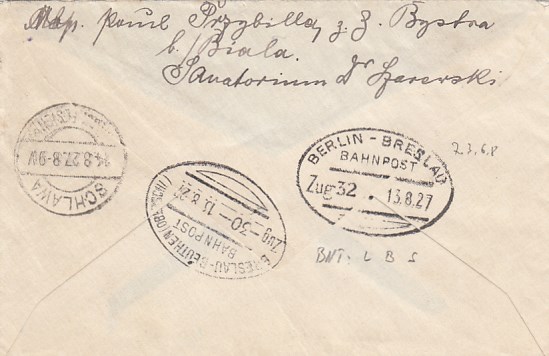 Abp. Paul Przybilla, z. Z. Bystra
b./Biala.
Sanatorium Dr
SCHLAWA
14.8.27.8-9V
BRESLAU-BEUTHEN (OBERSCHL)
BAHNPOST
Zug 30
BERLIN - BRESLAU
BAHNPOST
Zug 32 . 13.8.27
23.6.8
BNT. L B S